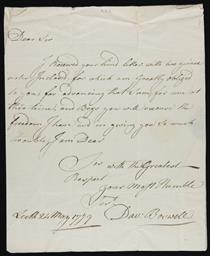 Dear Sir
I Received your kind letter with two guineas
order Inclosed for which am Greatly obliged
to you, for advancing that Sum for me at
this time, and Begs you will excuse the
freedom I have and am giving you so much
trouble, I am Dear
Sir with the Greatest
Respect
your Most Humble
Ser
Leith 24 May 1779 Dav Boswell